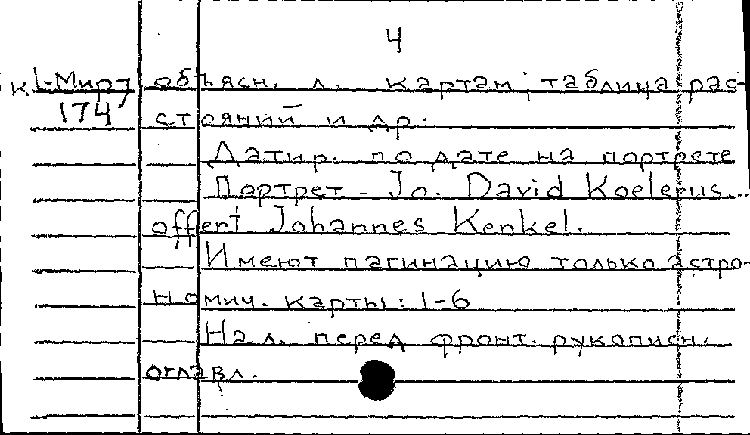 4
К 1-Мир7 объясн. л. картам; таблица рас-
174 стояний и др.
Датир. по дате на портрете
Портрет - Jo. David Koelerus...
offert Johannes Kenkel.
Имеют пагинацию только астро-
номич. карты: 1-6
На л. перед фронт. рукописн.
оглавл.